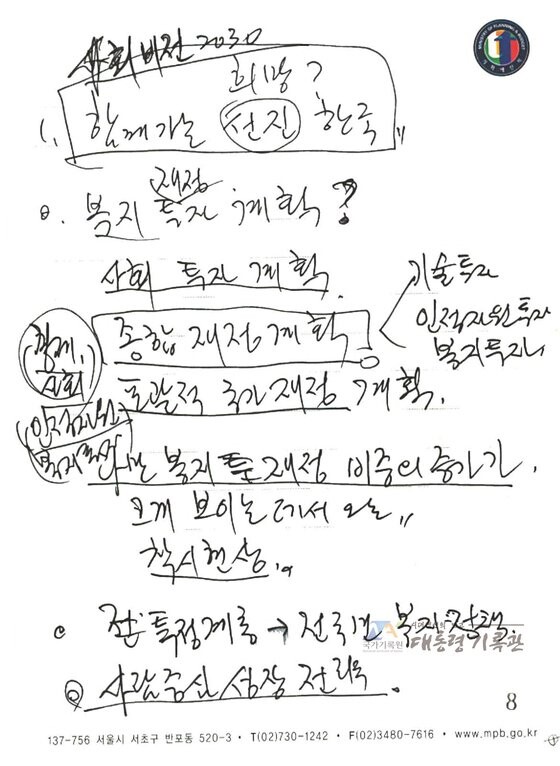 사회비전 2030
희망?
1. 함께가는 선진 한국"
재정
0. 복지 투자 계획?
사회 투자 계획.
기술투자
종합 재정계획!
인적자원투자
복지투자
경제,
사회
포괄적 국가재정 계획.
인적자원
복지 재정 비중의 증가가,
크게 보이는 데서 오는"
착시현상.
특정계층 → 전국민 복지정책.
국가기록원 대통령기록관
사람중심 성장 전략.
8
137-756 서울시 서초구 반포동 520-3 • T(02)730-1242 • F(02)3480-7616 • www.mpb.go.kr